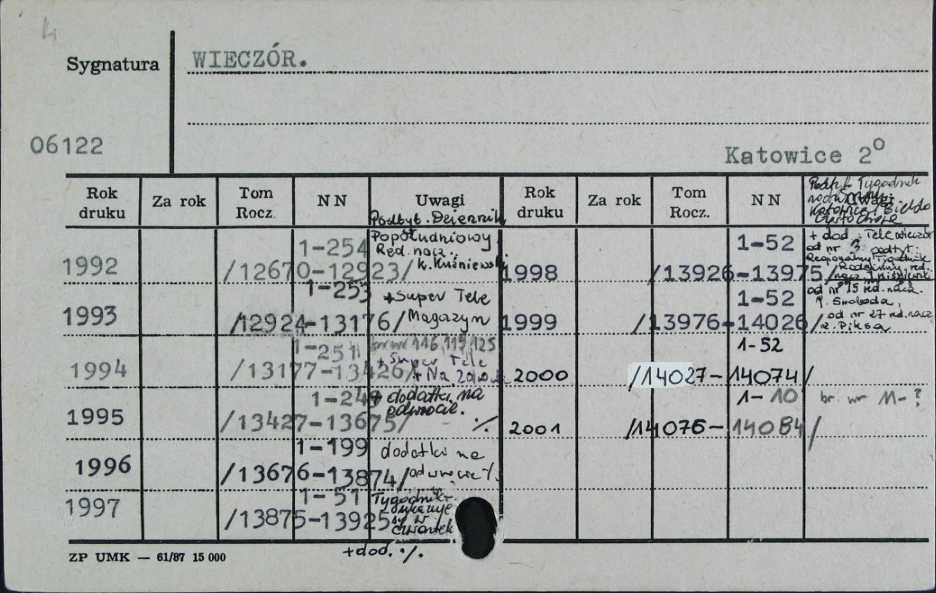 Sygnatura WIECZÓR.
06122
Katowice 2°
Rok druku Za rok Tom Rocz. NN Uwagi Rok druku Za rok Tom Rocz. NN Uwagi
Podtyt. Dziennik
Popołudniowy
Red. nacz.
K. Kuśniewski
1992 1-254 /12670-12923/
1993 1-253 /12924-13176/ +Super Tele Magazyn
1994 1-251 /13177-13426/ br nr 116,119,125
+Super Tele
1995 1-249 /13427-13675/ + dodatki na
odwrocie. ./.
1996 1-199 /13676-13874/ dodatki na
odwrocie ./.
1997 1-51 /13875-13925/ Tygodnik
ukazuje
się w
czwartek
+dod. ./.
Podtyt. Tygodnik
1998 1-52 /13926-13975/ + dod. Tele wieczór
od nr 3 podtyt.
Regionalny Tygodnik
1999 1-52 /13976-14026/ od nr 15 red. nacz.
Swoboda,
od nr 27 red. nacz
Piksa
2000 1-52 /14027-14074/
2001 1-10 /14075-14084/ br. nr 11-?
ZP UMK — 61/87 15 000